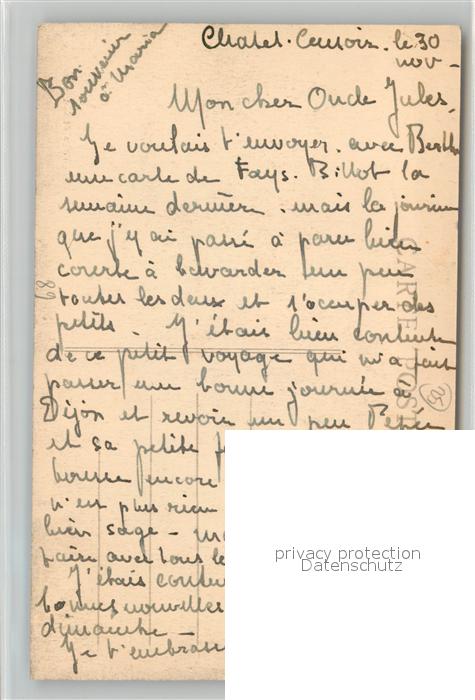 Bon
souvenir
à Maria
Chatel-Censoir. le 30
nov -
Mon cher Oncle Jules,
Je voulais t'envoyer. avec Berthe
une carte de Fays-Billot la
semaine dernière. mais la journée
que j'y ai passé à paru bien
courte à bavarder un peu
toutes les deux et s'occuper des
petits. J'étais bien contente
de ce petit voyage qui m'a fait
passer une bonne journée à
Dijon et revoir un peu
et sa petite
encore
n'est plus rien
bien sage -
faire avec tous le
J'étais conten
bonnes nouvelles
dimanche -
Je t'embrass
CARTE POST
89
privacy protection
Datenschutz